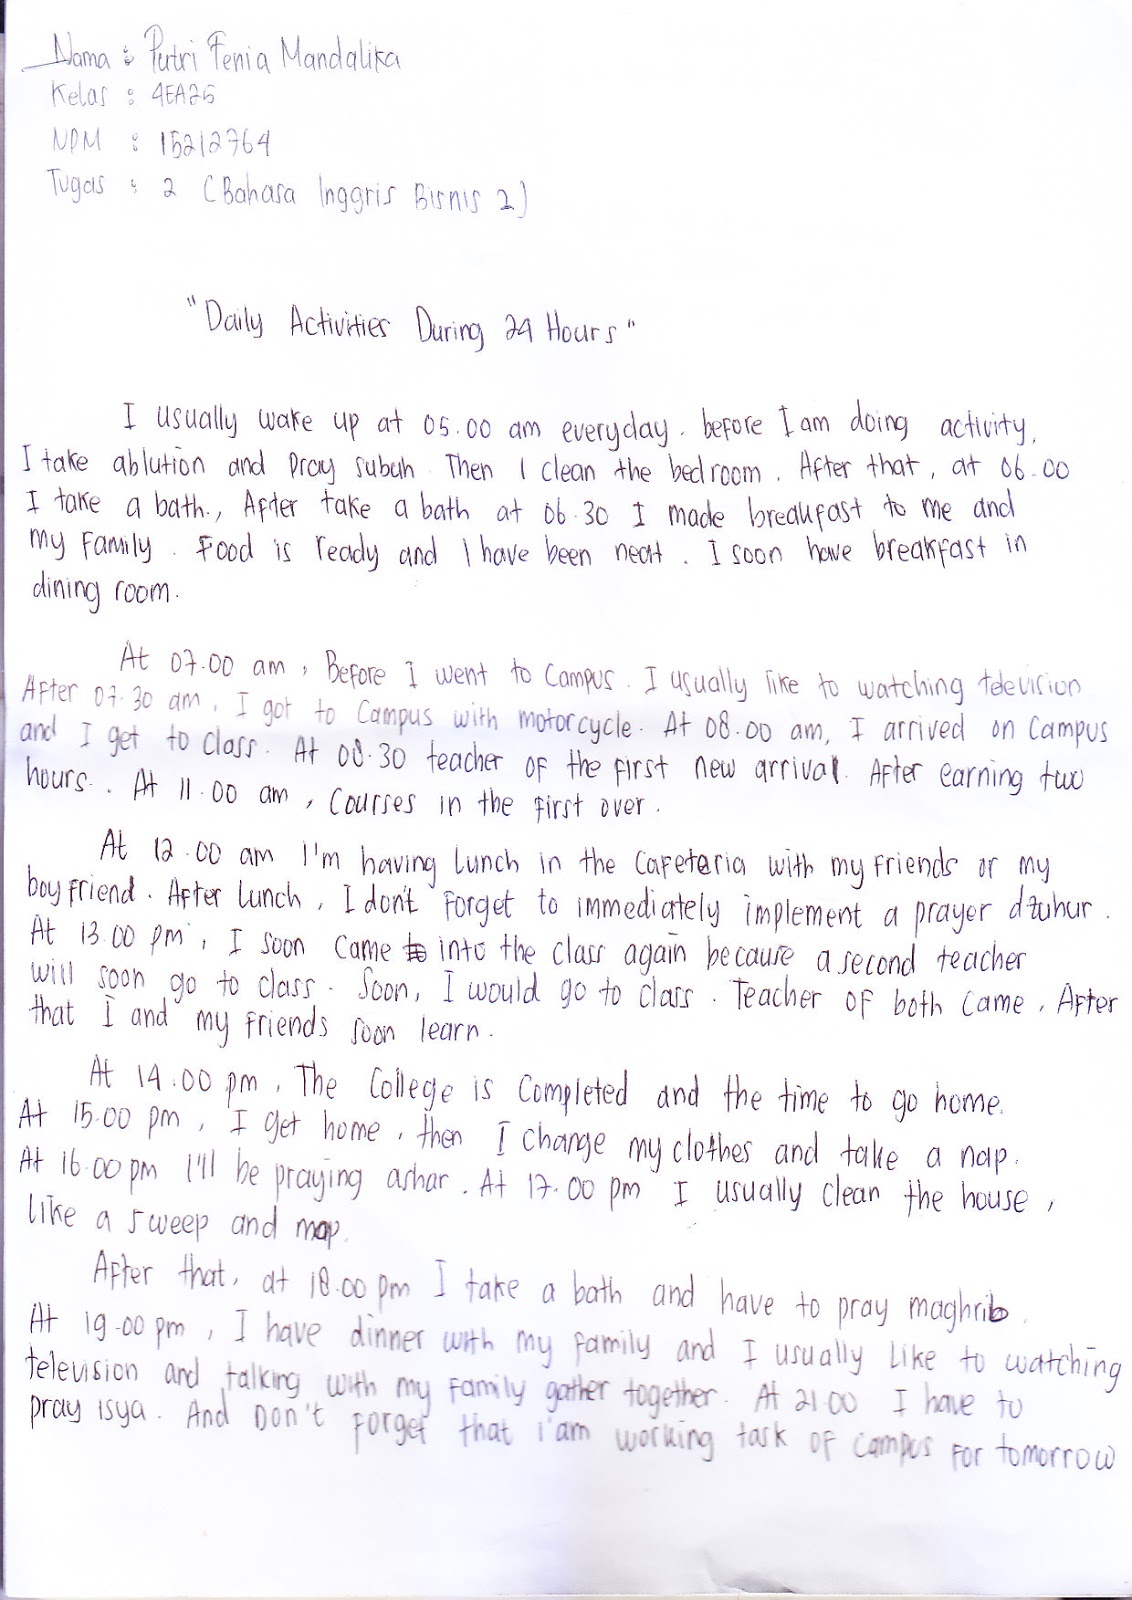 Nama : Putri Fenia Mandalika
Kelas : 4EA25
NPM : 15212764
Tugas : 2 (Bahasa Inggris Bisnis 2)
"Daily Activities During 24 Hours"
I usually wake up at 05.00 am everyday. before I am doing activity,
I take ablution and pray subuh. Then I clean the bedroom. After that, at 06.00
I take a bath., After take a bath at 06.30 I made breakfast to me and
my family. Food is ready and I have been neat. I soon have breakfast in
dining room.
At 07.00 am, Before I went to Campus. I usually like to watching television
After 07.30 am, I got to Campus with motorcycle. At 08.00 am, I arrived on Campus
and I get to class. At 08.30 teacher of the first new arrival. After earning two
hours.. At 11.00 am, Courses in the first over.
At 12.00 am I'm having lunch in the Cafetaria with my friends or my
boyfriend. After lunch, I don't forget to immediately implement a prayer dzuhur.
At 13.00 pm, I soon came into the class again because a second teacher
will soon go to class. Soon, I would go to class. Teacher of both came, After
that I and my friends soon learn.
At 14.00 pm, The College is Completed and the time to go home.
At 15.00 pm, I get home, then I change my clothes and take a nap.
At 16.00 pm I'll be praying ashar. At 17.00 pm I usually clean the house,
like a sweep and mop.
After that, at 18.00 pm I take a bath and have to pray maghrib.
At 19.00 pm, I have dinner with my family and I usually like to watching
television and talking with my family gather together. At 21.00 I have to
pray isya. And Don't forget that i'am working task of campus for tomorrow